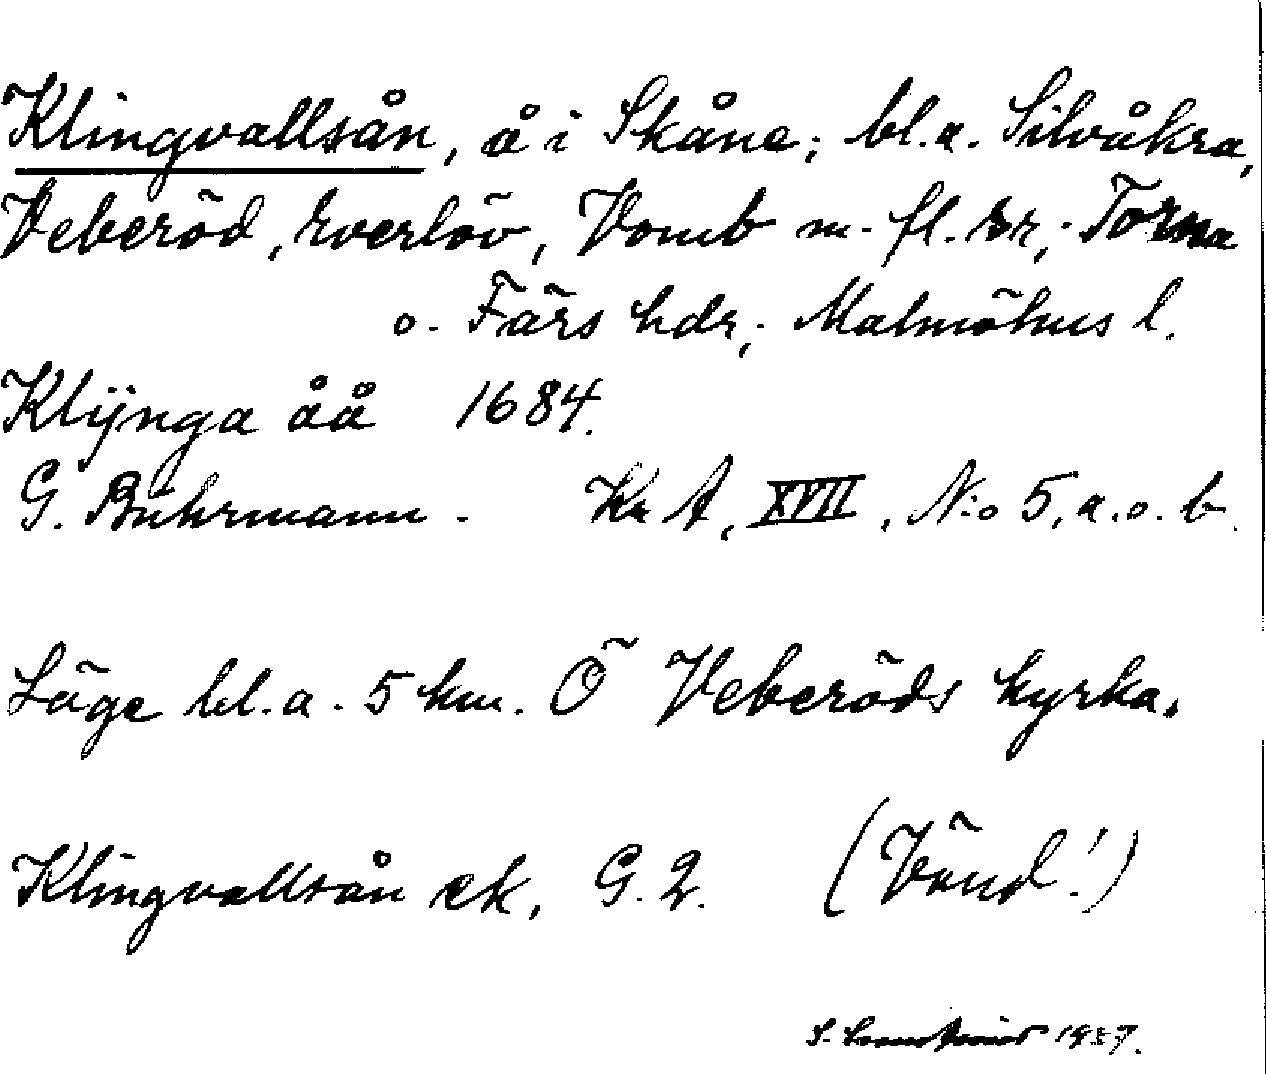 Klingvallsån, å i Skåne; bl.a. Silvåkra,
Veberöd, Everlöv, Vomb m. fl. sr; Torna
o. Färs hdr; Malmöhus l.
Klijnga åå 1684.
G. Buhrmann. Kr A, XVII, N:o 5, a.o. b.
Läge bl.a. 5 km. Ö Veberöds kyrka.
Klingvallsån ek, G. 2. (Vänd!)
S. 1937.